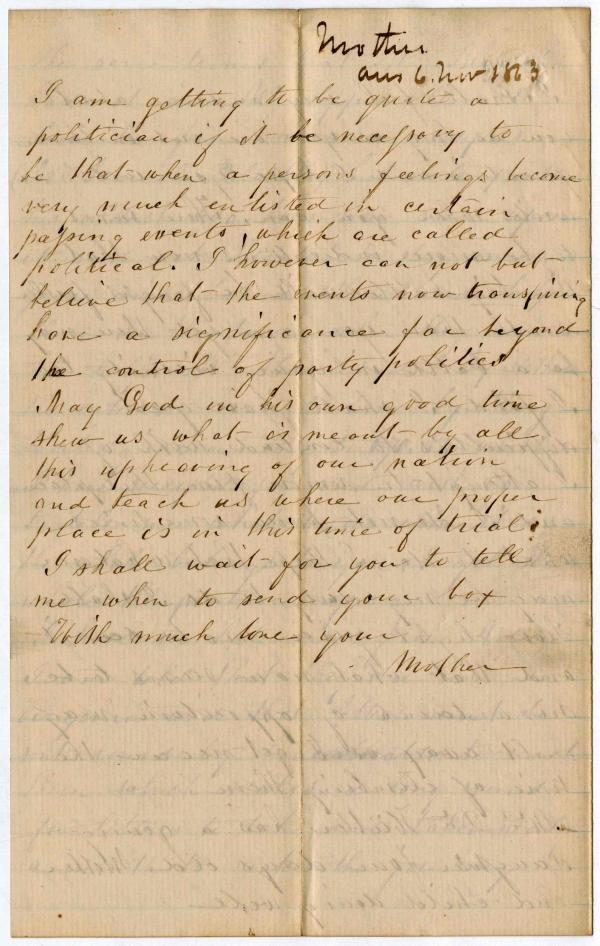 Mother
ans 6. Nov 1863
I am getting to be quite a
politician if it be necessary to
be that when a persons feelings become
very much enlisted in certain
passing events, which are called
political. I however can not but
believe that the events now transpiring
have a significance far beyond
the control of party politics
May God in his own good time
shew us what is meant by all
this upheaving of our nation
and teach us where our proper
place is in this time of trial:
I shall wait for you to tell
me when to send your box
With much love your
Mother